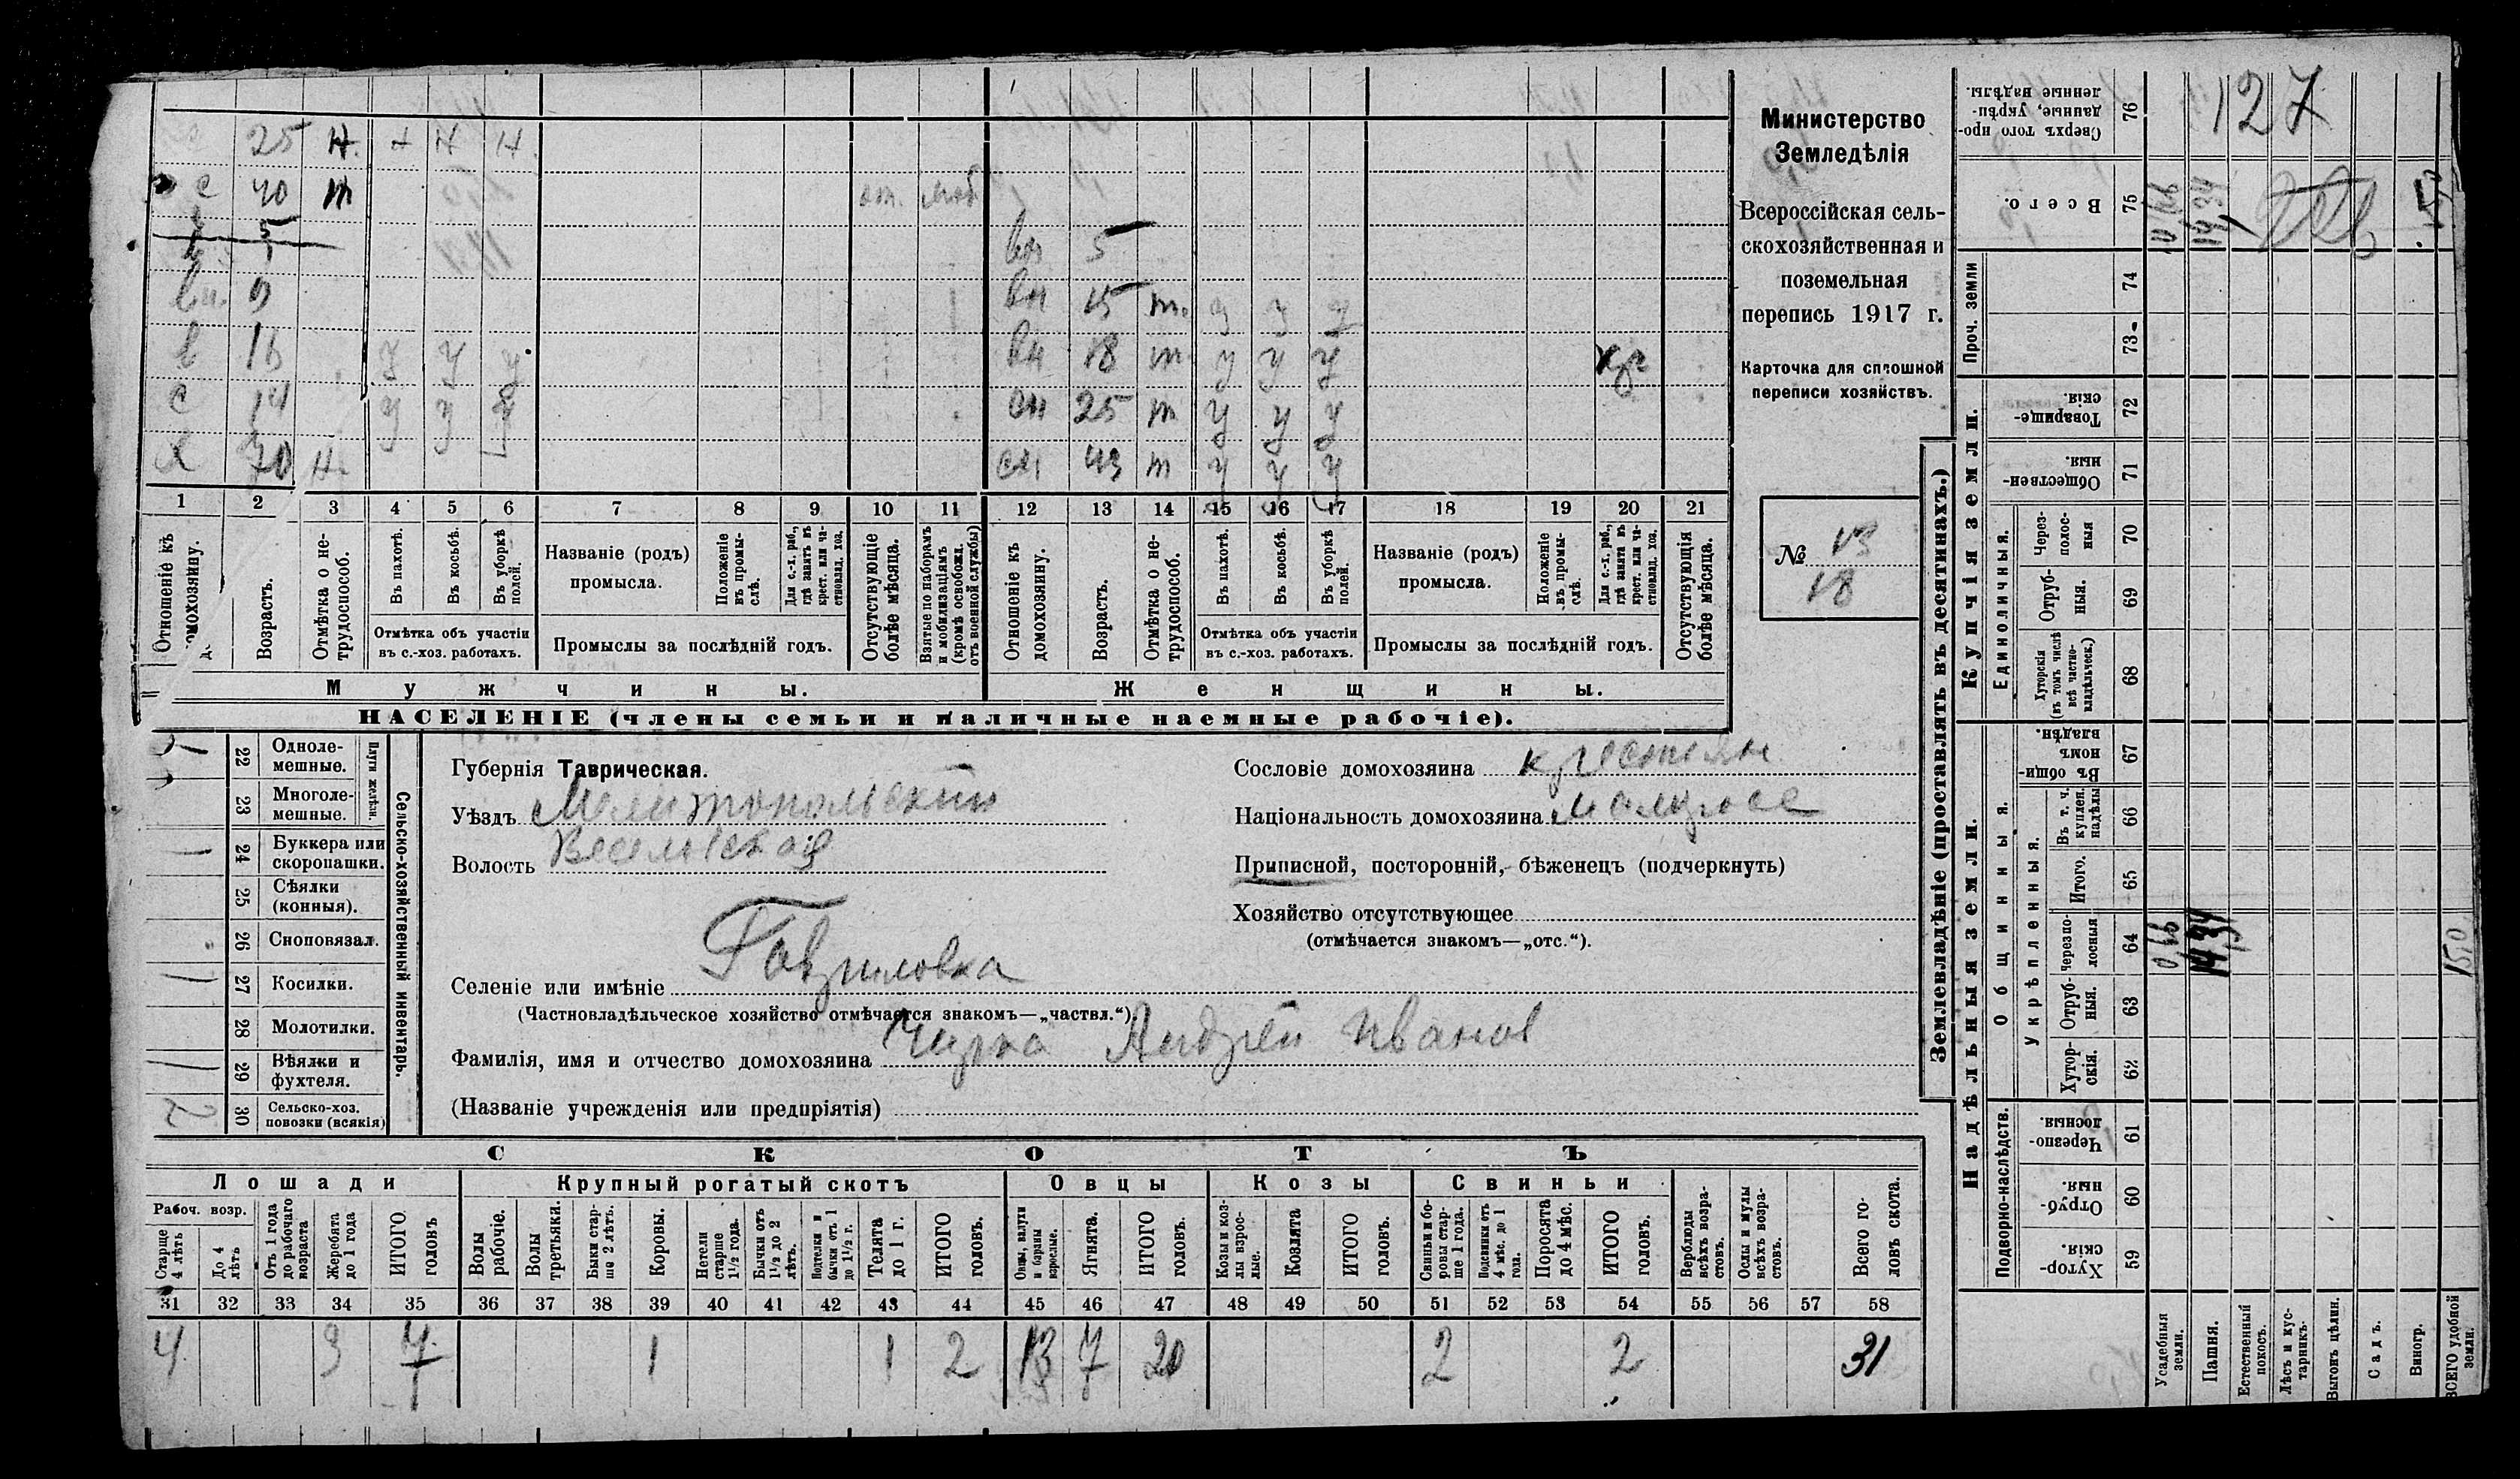 25 Н. Н Н Н.
с 40 отс. моб
5
вн 5
вн. 9 вн 15 т. у у у
в 16 у у у вн 18 т у у у
с 14 у у у сн 25 т у у у
х 70 Н. сн 43 т у у у
1 2 3 4 5 6 7 8 9 10 11 12 13 14 15 16 17 18 19 20 21
Отношеніе къ домохозяину.
Возрастъ.
Отмѣтка о не-
трудоспособ.
Въ пахотѣ.
Въ косьбѣ.
Въ уборкѣ
полей.
Отмѣтка объ участіи
въ с.-хоз. работахъ.
Названіе (родъ)
промысла.
Положеніе
въ промы-
слѣ.
Для с.-х. раб.,
гдѣ занятъ въ
крест. или ча-
стновлад. хоз.
Промыслы за послѣдній годъ.
Отсутствующіе
болѣе мѣсяца.
Взятые по наборамъ
и мобилизаціямъ
(кромѣ освобожд.
отъ военной службы)
Отношеніе къ
домохозяину.
Возрастъ.
Отмѣтка о не-
трудоспособ.
Въ пахотѣ.
Въ косьбѣ.
Въ уборкѣ
полей.
Отмѣтка объ участіи
въ с.-хоз. работахъ.
Названіе (родъ)
промысла.
Положеніе
въ промы-
слѣ.
Для с.-х. раб.,
гдѣ занята въ
крест. или ча-
стновлад. хоз.
Промыслы за послѣдній годъ.
Отсутствующія
болѣе мѣсяца.
Мужчины. Женщины.
НАСЕЛЕНІЕ (члены семьи и наличные наемные рабочіе).
Министерство
Земледѣлія
Всероссійская сель-
скохозяйственная и
поземельная
перепись 1917 г.
Карточка для сплошной
переписи хозяйствъ.
№ 13
18
22 Одноле-
мешные.
23 Многоле-
мешные.
Плуги желѣзн.
24 Буккера или
скоропашки.
25 Сѣялки
(конныя).
26 Сноповязал.
27 Косилки.
28 Молотилки.
29 Вѣялки и
фухтеля.
30 Сельско-хоз.
повозки (всякія)
2
Сельско-хозяйственный инвентарь.
Губернія Таврическая.
Уѣздъ Мелитопольскій
Волость Веселовская
Селеніе или имѣніе Гавриловка
(Частновладѣльческое хозяйство отмѣчается знакомъ—„частвл.“).
Фамилія, имя и отчество домохозяина Чирка Андрей Иванов
(Названіе учрежденія или предпріятія)
Сословіе домохозяина крестьян
Національность домохозяина малоросс
Приписной, посторонній, бѣженецъ (подчеркнуть)
Хозяйство отсутствующее
(отмѣчается знакомъ—„отс.“).
СКОТЪ
Лошади Крупный рогатый скотъ Овцы Козы Свиньи
Рабоч. возр.
Старше
4 лѣтъ
До 4
лѣтъ
Отъ 1 года
до рабочаго
возраста
Жеребята
до 1 года
ИТОГО
головъ
Волы
рабочіе.
Волы
третьяки.
Быки стар-
ше 2 лѣтъ.
Коровы.
Нетели
старше
1½ года.
Бычки отъ
1½ до 2
лѣтъ.
Подтелки и
бычки отъ 1
до 1½ г.
Телята
до 1 г.
ИТОГО
головъ.
Овцы, валухи
и бараны
взрослые.
Ягнята.
ИТОГО
головъ.
Козы и коз-
лы взрос-
лые.
Козлята
ИТОГО
головъ.
Свиньи и бо-
ровы стар-
ше 1 года.
Подсвинки отъ
4 мѣс. до 1
года.
Поросята
до 4 мѣс.
ИТОГО
головъ.
Верблюды
всѣхъ возра-
стовъ.
Ослы и мулы
всѣхъ возра-
стовъ.
Всего го-
ловъ скота.
31 32 33 34 35 36 37 38 39 40 41 42 43 44 45 46 47 48 49 50 51 52 53 54 55 56 57 58
4 3 7 1 1 2 13 7 20 2 2 31
Землевладѣніе (проставлять въ десятинахъ.)
Надѣльныя земли. Купчія земли.
Подворно-наслѣдств.
Общинныя.
Укрѣпленныя.
Единоличныя.
Проч. земли
Хутор-
скія. 59
Отруб-
ныя. 60
Черезпо-
лосныя 61
Хутор-
скія. 62
Отруб-
ныя. 63
Черезпо-
лосныя 64
Итого. 65
Въ т. ч.
куплен.
надѣлы 66
Въ общи-
номъ
владѣн. 67
Хуторскія
(въ томъ числѣ
всѣ частно-
владѣльческ.) 68
Отруб-
ныя. 69
Через-
полос-
ныя 70
Обществен-
ныя. 71
Товарище-
скія. 72
73
74
Всего. 75
Сверхъ того про-
данные, укрѣп-
ленные надѣлы. 76
Усадебныя
земли. 0,66 0,66
Пашня. 14,34 14,34
Естественный
покосъ.
Лѣсъ и кус-
тарникъ.
Выгонъ цѣлин.
Садъ.
Виногр.
ВСЕГО удобной
земли. 15,0
127